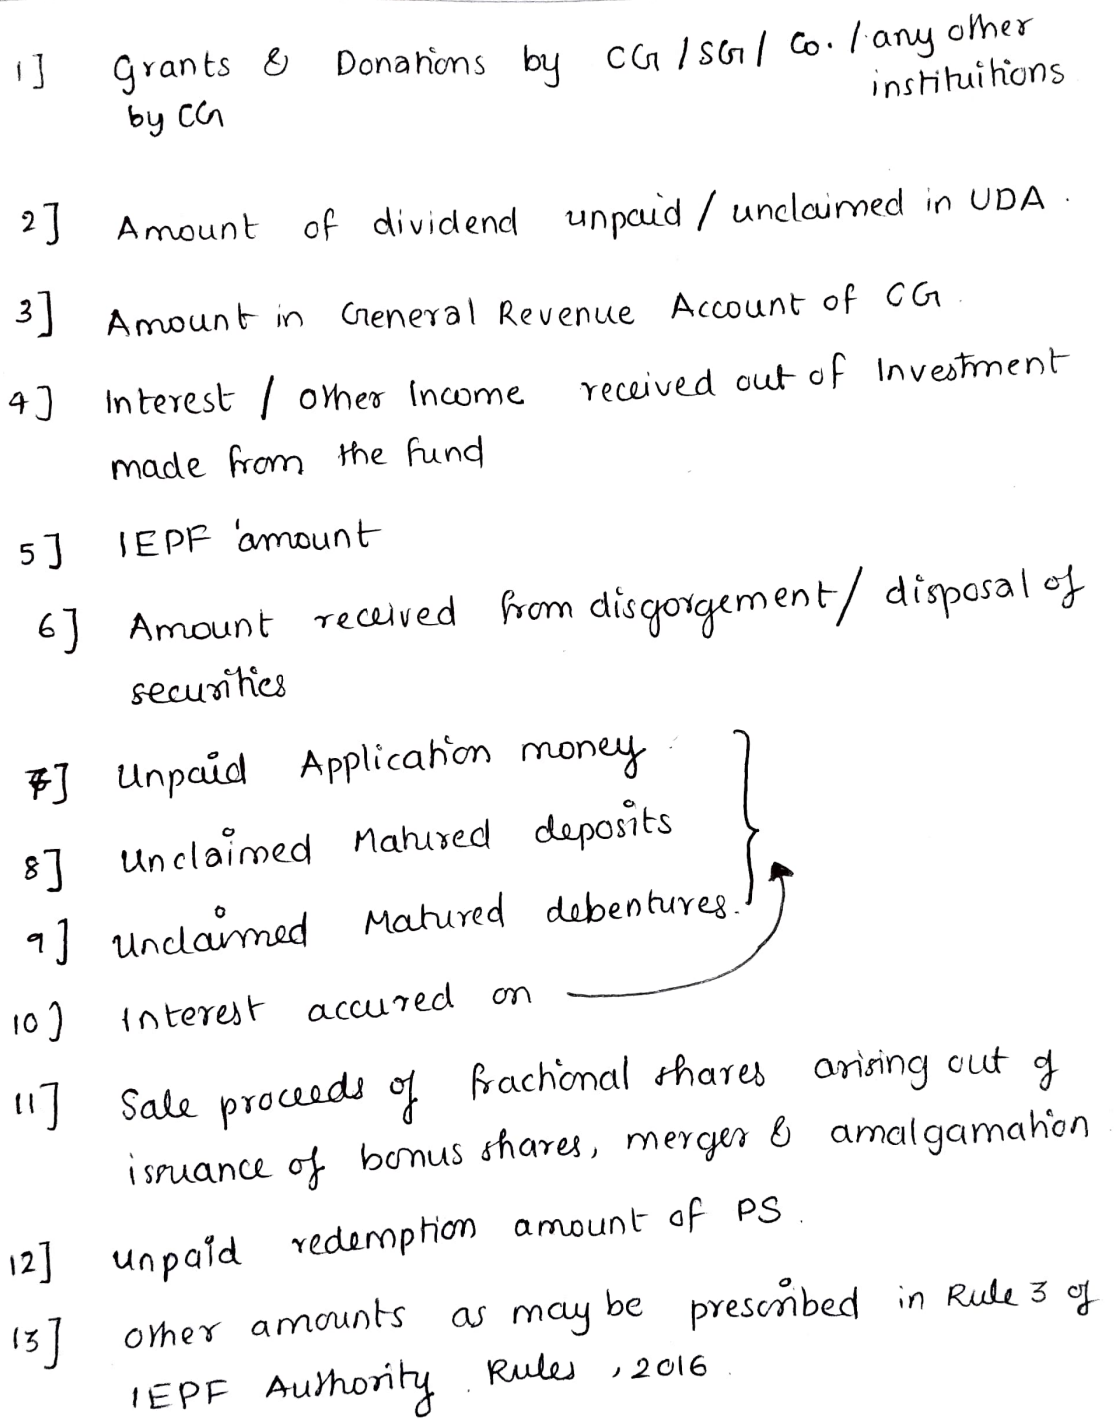 1] Grants & Donations by CG / SG / Co. / any other
instituitions
by CG
2] Amount of dividend unpaid / unclaimed in UDA.
3] Amount in General Revenue Account of CG.
4] Interest / other Income received out of Investment
made from the fund
5] IEPF amount
6] Amount received from disgorgement / disposal of
securities
7] Unpaid Application money
8] Unclaimed Matured deposits
9] Unclaimed Matured debentures.
10] Interest accured on
11] Sale proceeds of fractional shares arising out of
issuance of bonus shares, merger & amalgamation
12] Unpaid redemption amount of PS.
13] other amounts as may be prescribed in Rule 3 of
IEPF Authority Rules, 2016.